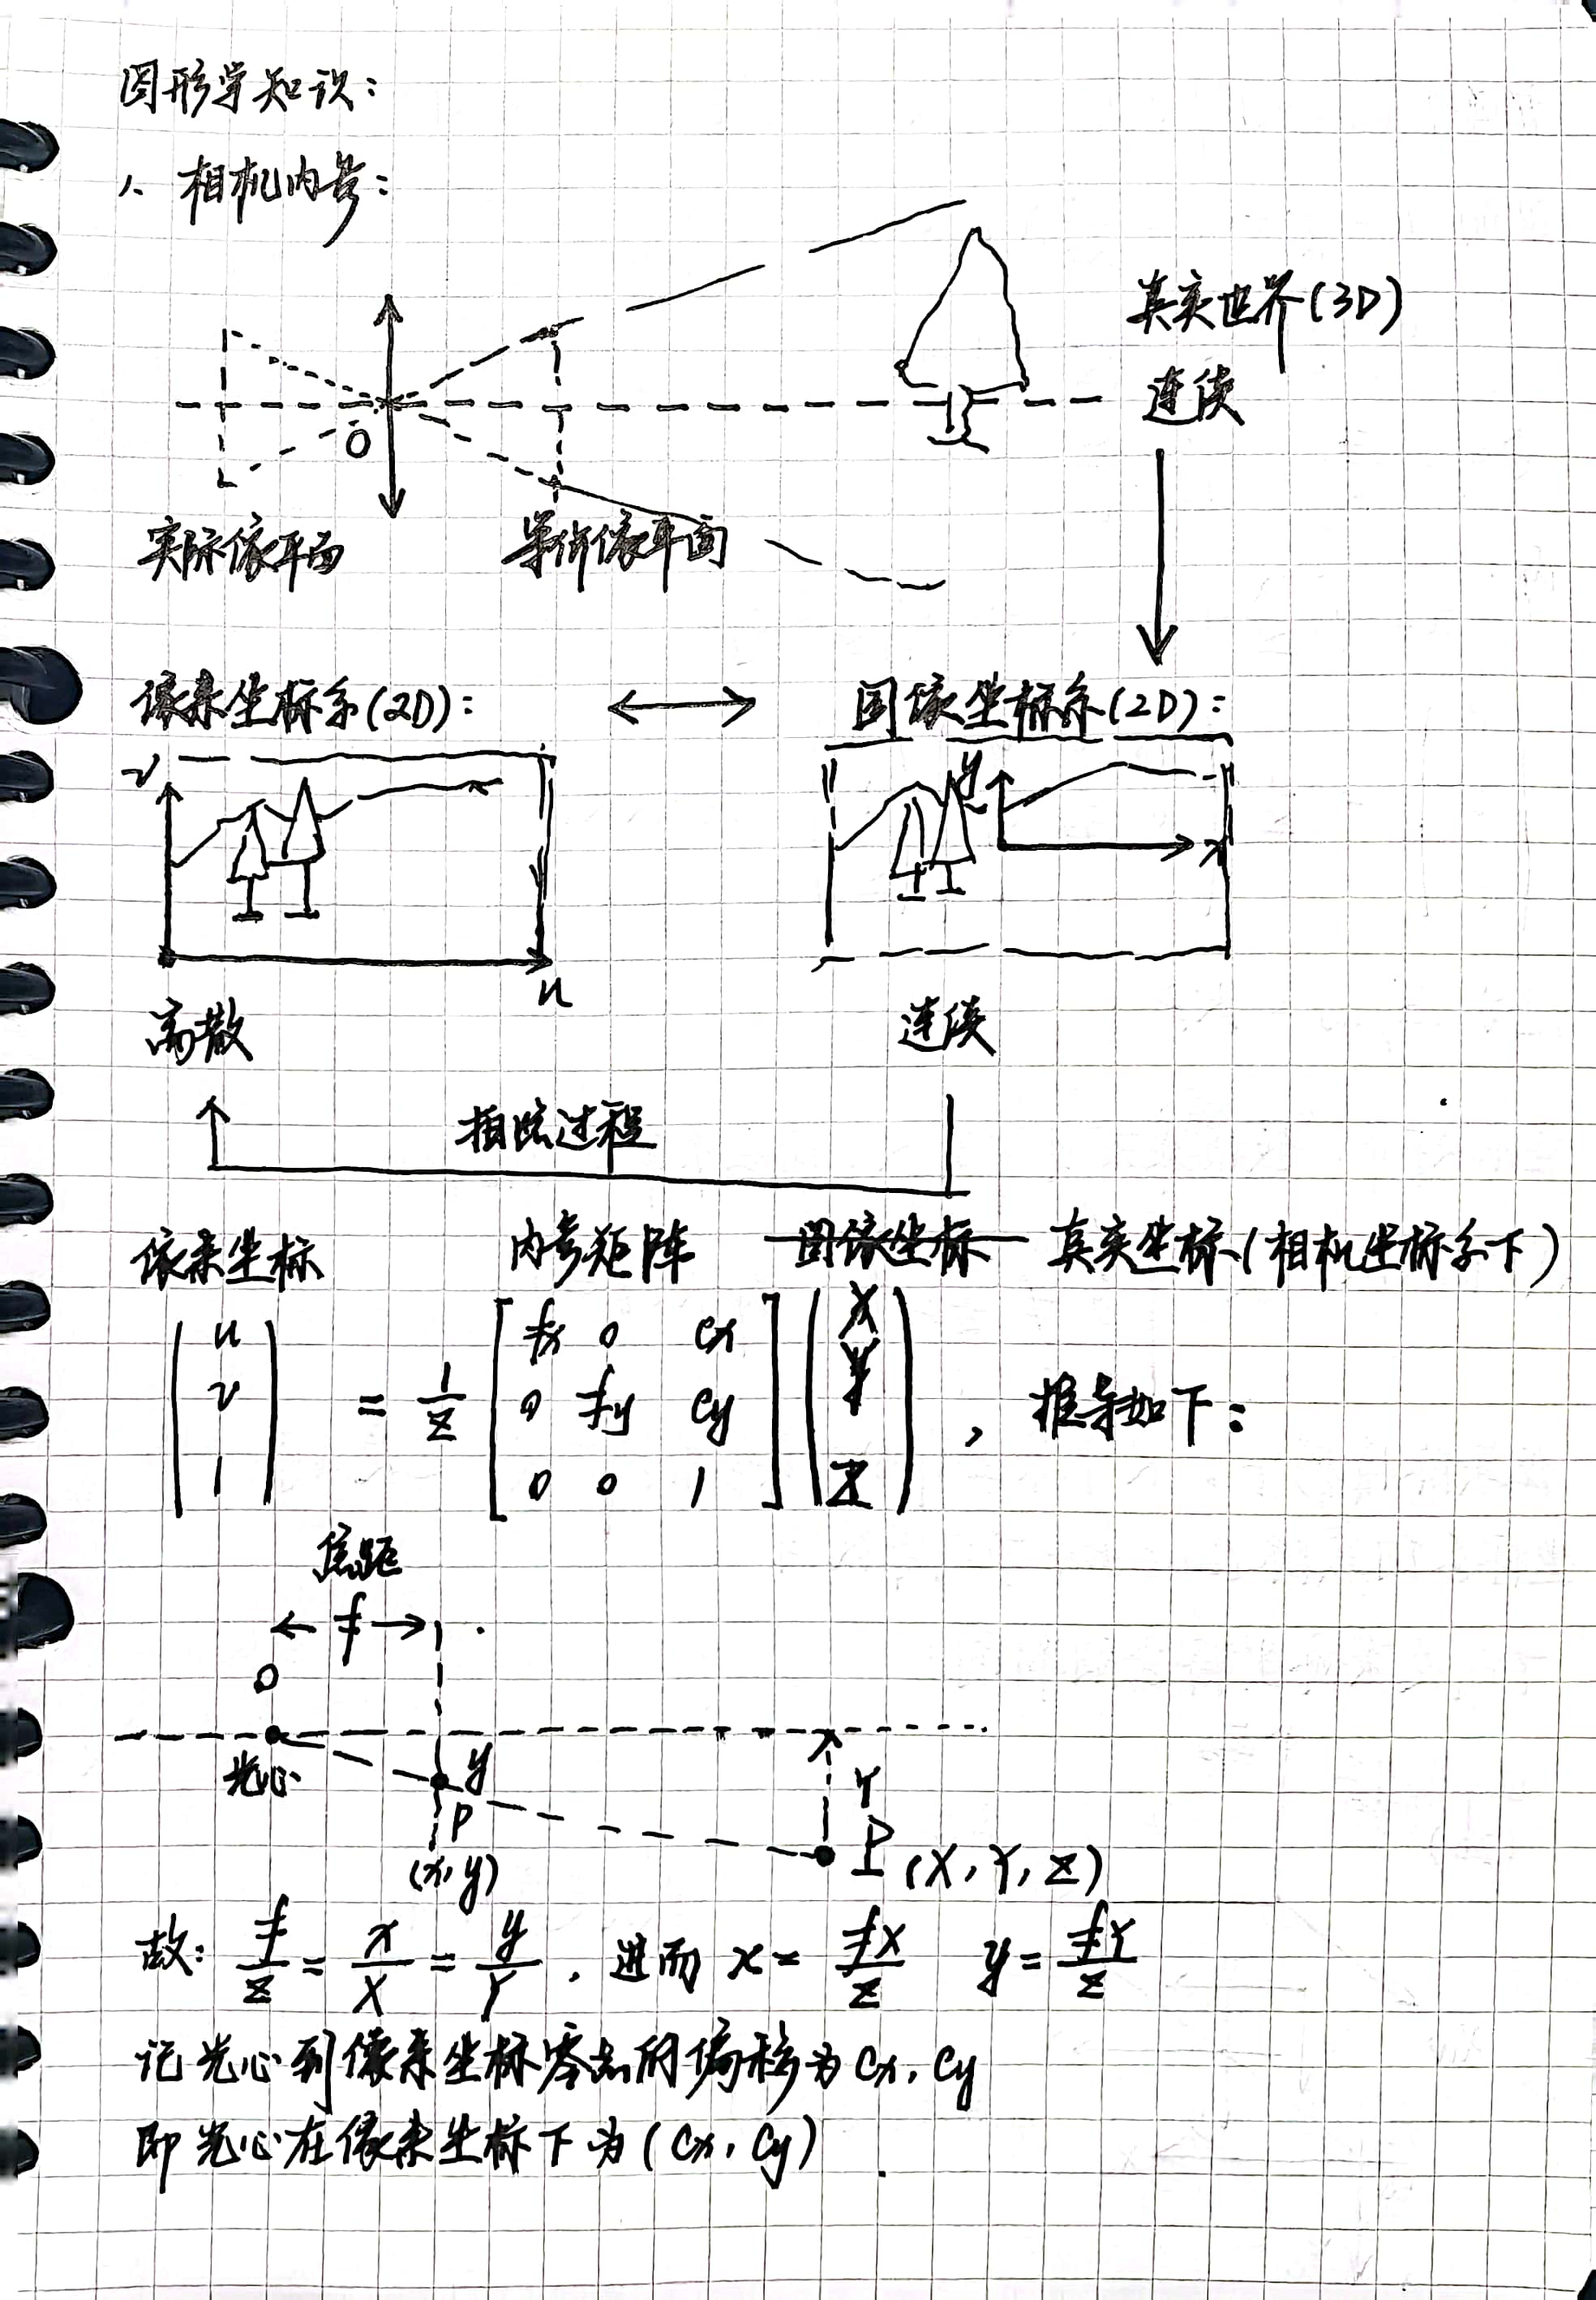 图形学知识：
1、相机内参：
真实世界(3D)
连续
O
实际像平面 等价像平面
像素坐标系(2D)： 图像坐标系(2D)：
v y
x
u
离散 连续
拍照过程
像素坐标 内参矩阵 图像坐标 真实坐标(相机坐标系下)
u = 1/Z [ fx 0 cx ] X
v 0 fy cy Y ，推导如下：
1 0 0 1 Z
焦距
f
O
光心 y Y
p P (X, Y, Z)
(x, y)
故：f/Z = x/X = y/Y . 进而 x = fX/Z y = fY/Z
记光心到像素坐标零点的偏移为 cx, cy
即光心在像素坐标下为 (cx, cy)